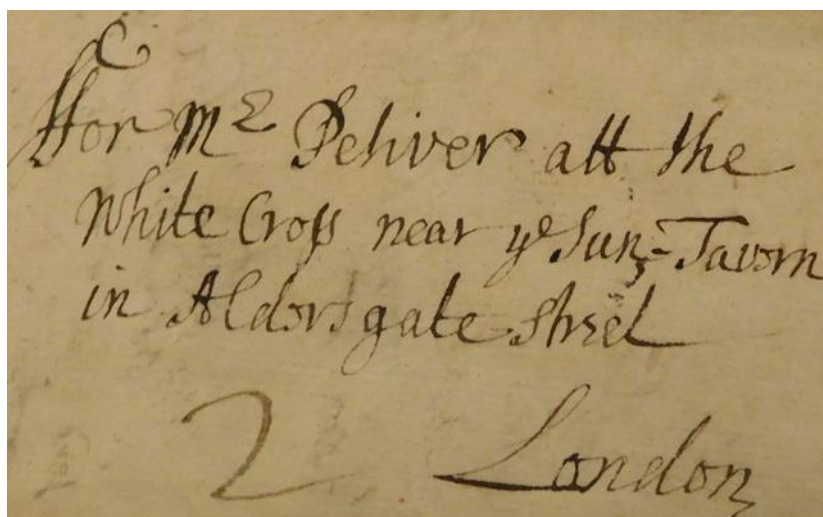 ffor Mr Petiver att the
White Cross near ye Sun-Tavern
in Aldersgate Street
2 London